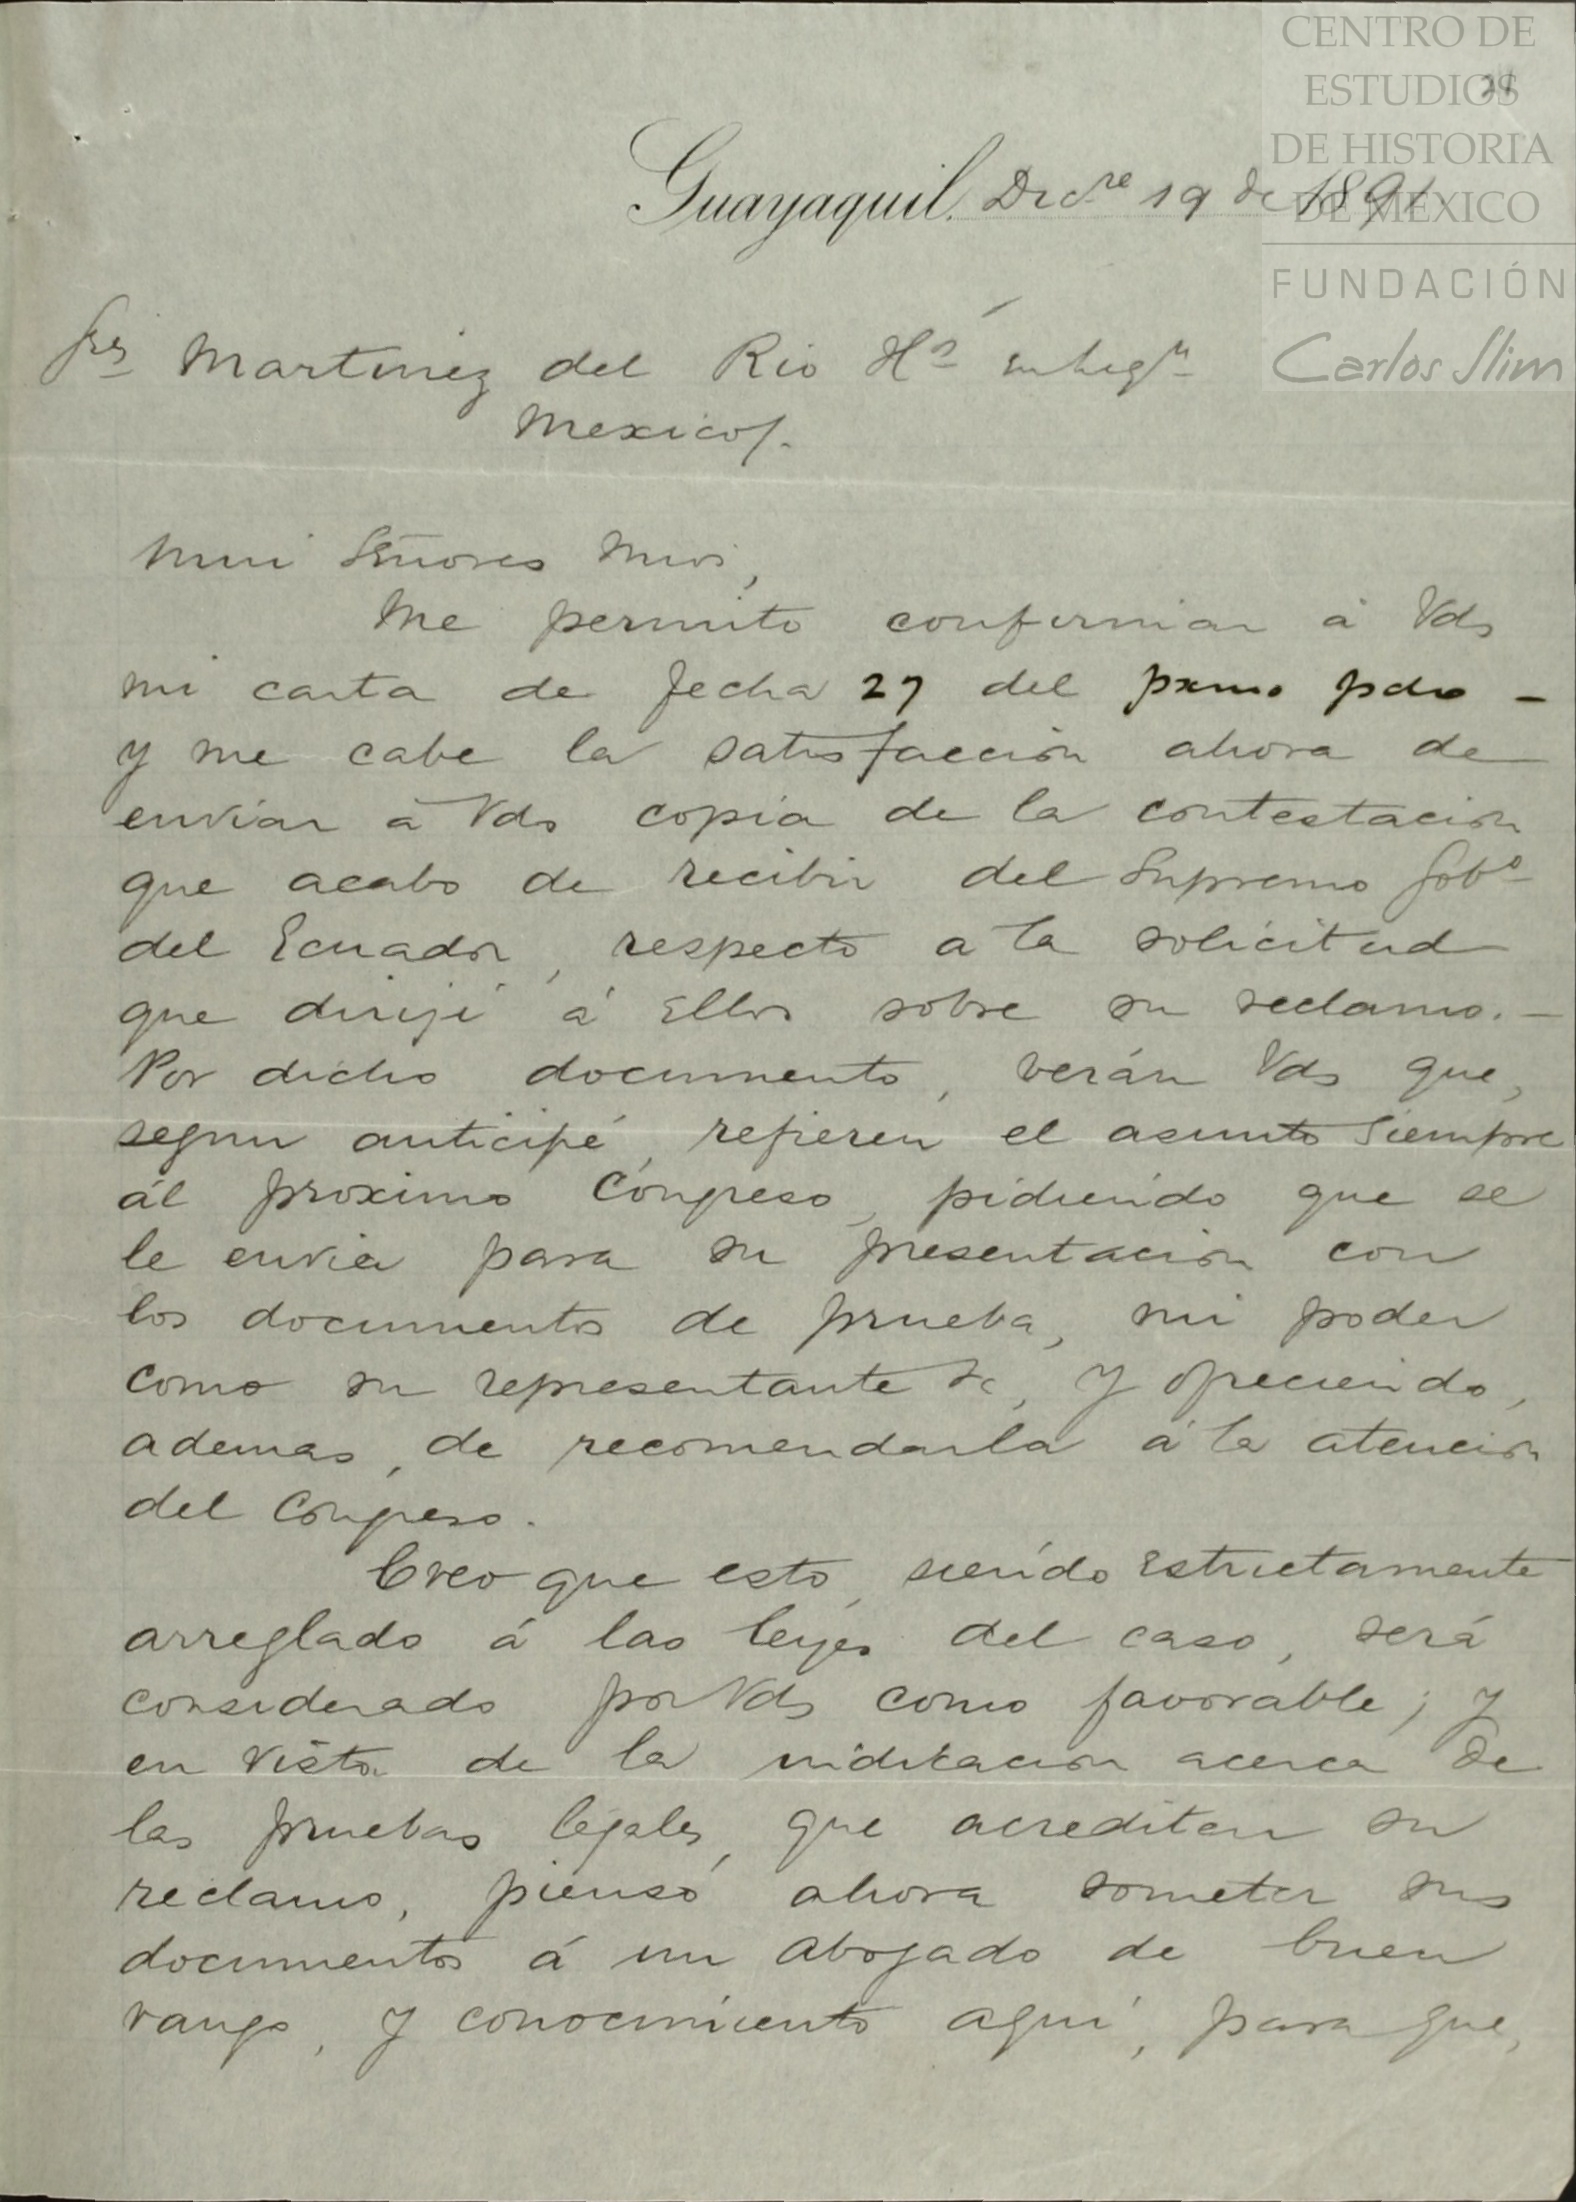 CENTRO DE
ESTUDIOS
DE HISTORIA
DE MÉXICO
FUNDACIÓN
Carlos Slim
Guayaquil. Dicre 19 de 1891
Sres Martinez del Rio Hs en liqn
Mexico/.
Mui Señores Mios,
Me permito confirmar á Vds
mi carta de fecha 27 del pxmo pdo -
y me cabe la satisfaccion ahora de
enviar á Vds copia de la contestacion
que acabo de recibir del Supremo Gobo
del Ecuador, respecto a la solicitud
que dirijí á Ellos sobre su reclamo. -
Por dicho documento, verán Vds que,
segun anticipé, refieren el asunto siempre
ál proximo Congreso, pidiendo que se
le envia para su presentacion con
los documentos de prueba, mi poder
como su representante &c, y ofreciendo,
ademas, de recomendarla á la atencion
del Congreso.
Creo que esto, siendo Estrictamente
arreglado á las leyes del caso, será
considerado por Vds como favorable; y
en vista de la indicacion acerca de
las pruebas legales, que acrediten su
reclamo, pienso ahora someter sus
documentos á un abogado de buen
rango, y conocimiento aquí, para que,